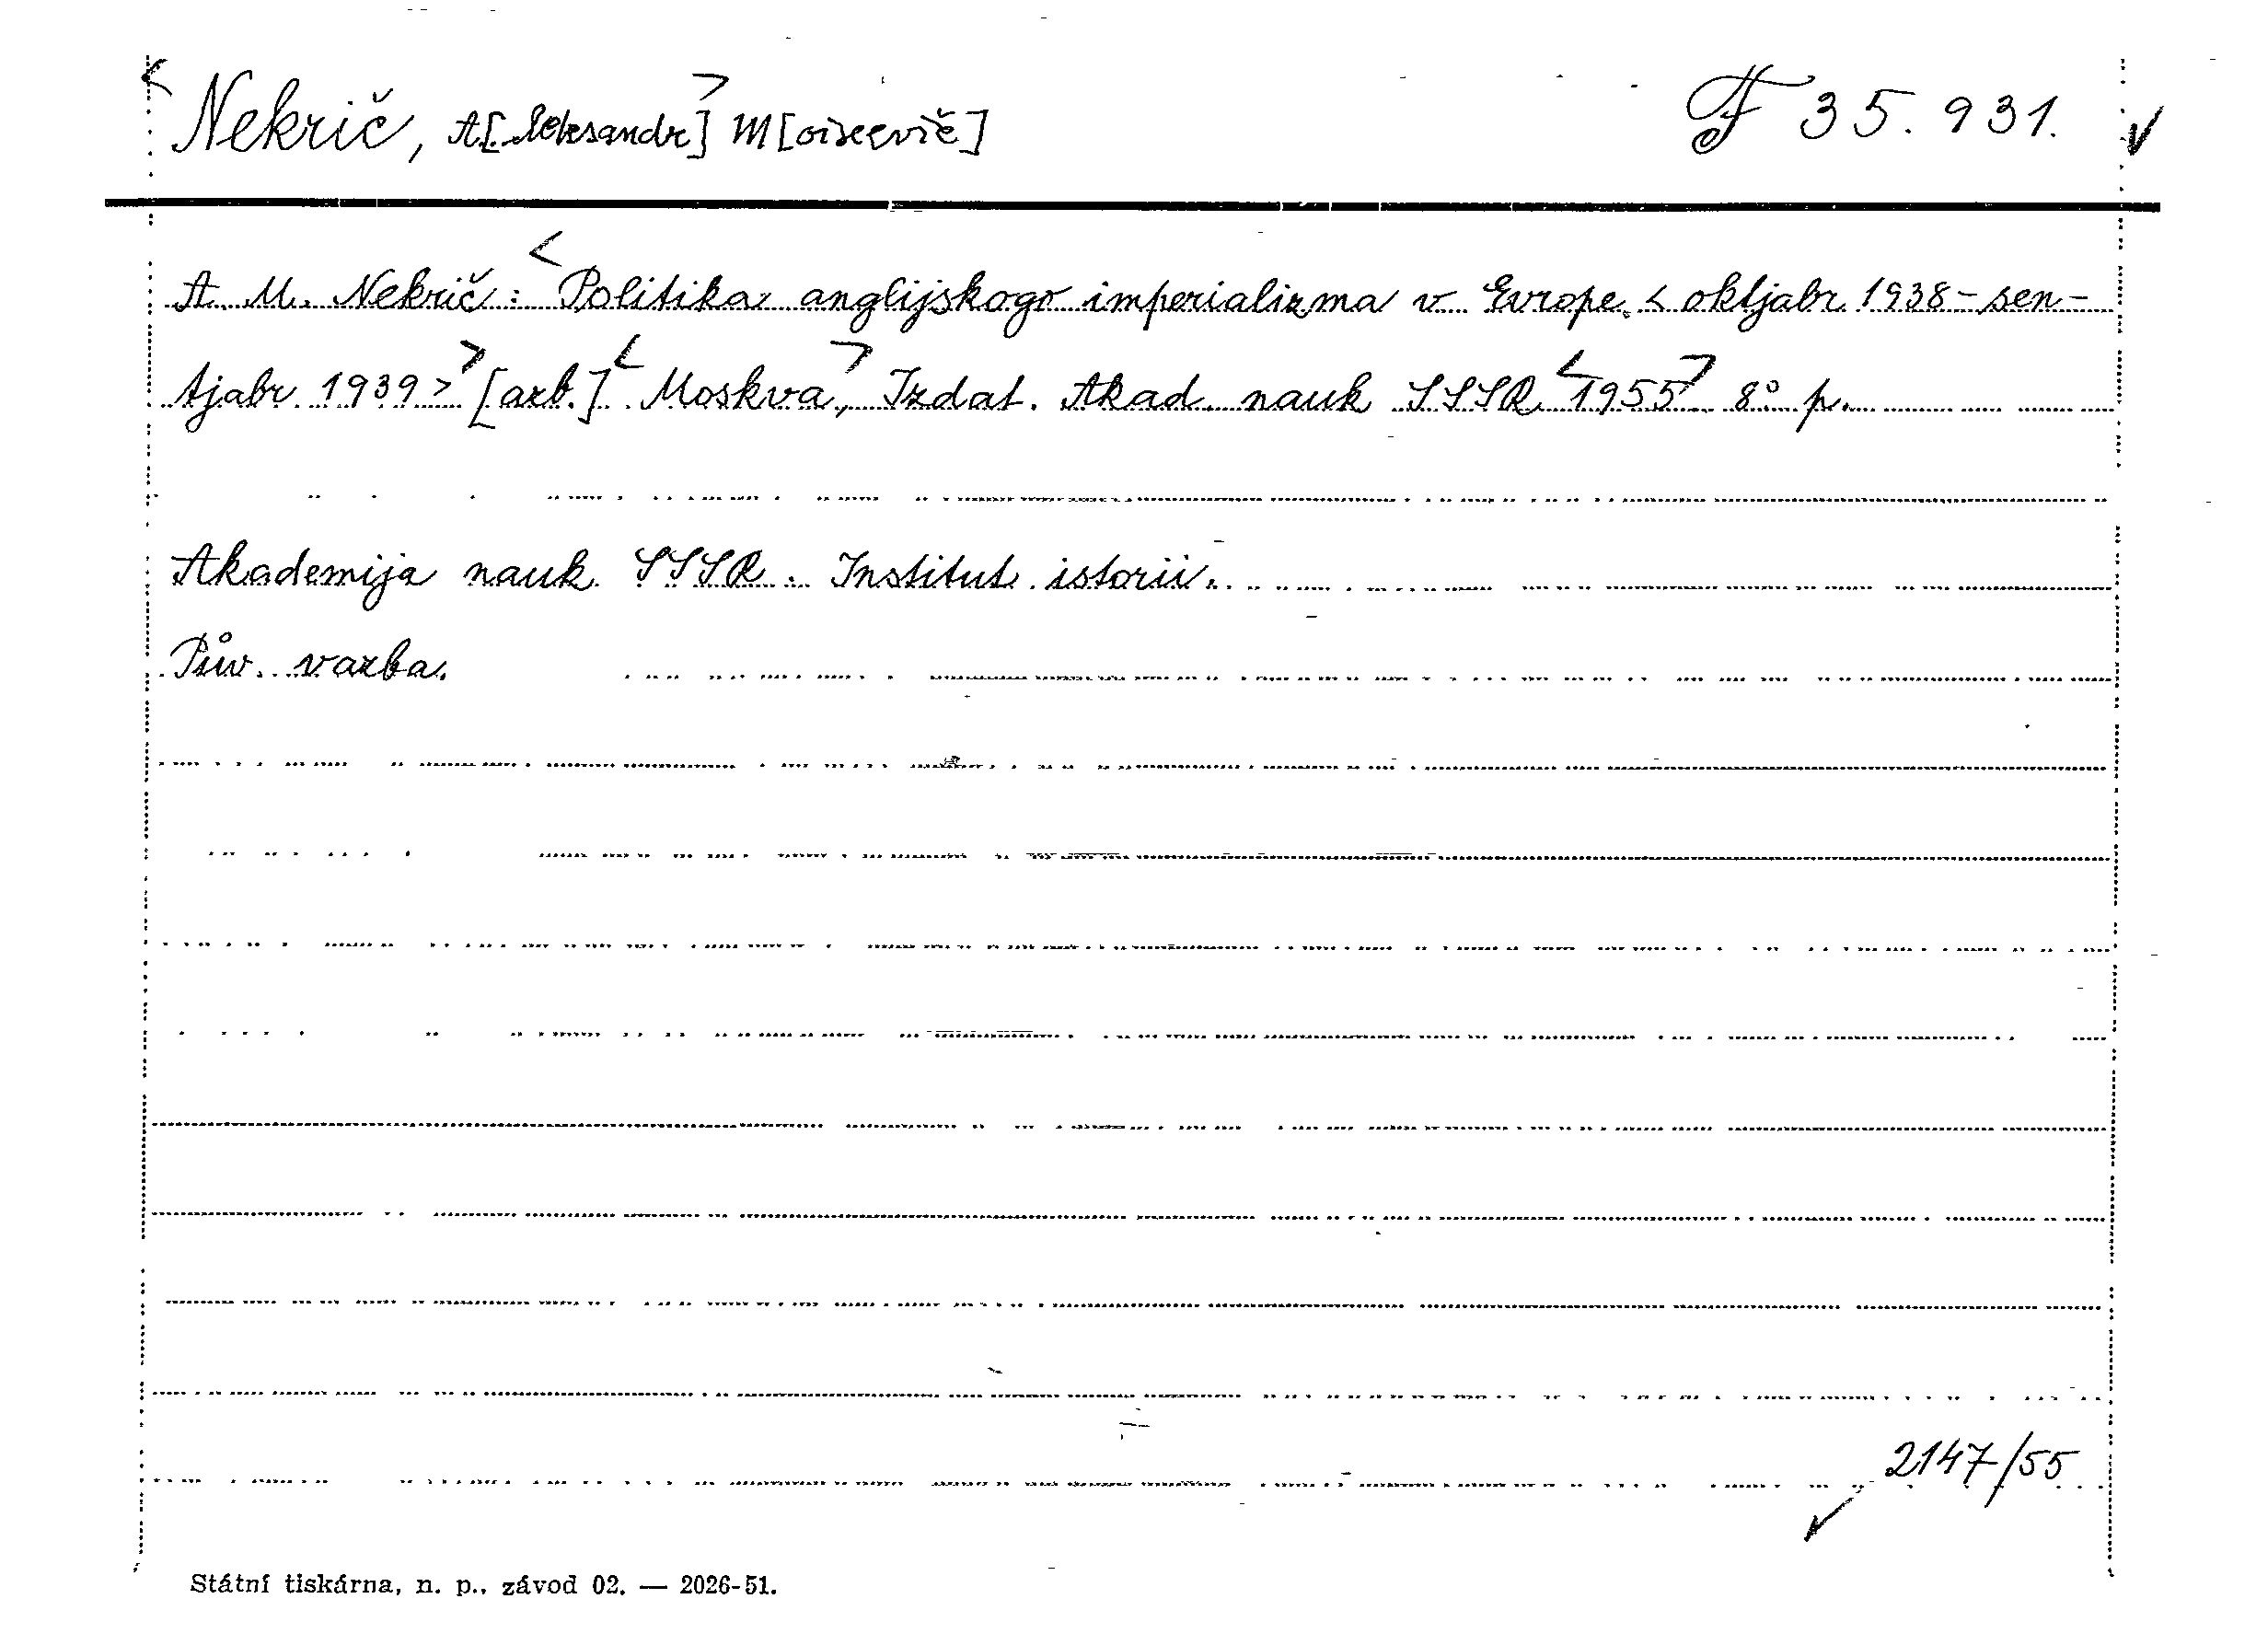 Nekrič, A[leksandr] M[oiseevič] F 35.931.
A. M. Nekrič: Politika anglijskogo imperializma v Evrope < oktjabr 1938-sen-
tjabr 1939 > [azb.] Moskva, Izdat. Akad. nauk SSSR 1955 8° p.
Akademija nauk SSSR. Institut istorii.
Pův. vazba.
2147/55
Státní tiskárna, n. p., závod 02. — 2026-51.